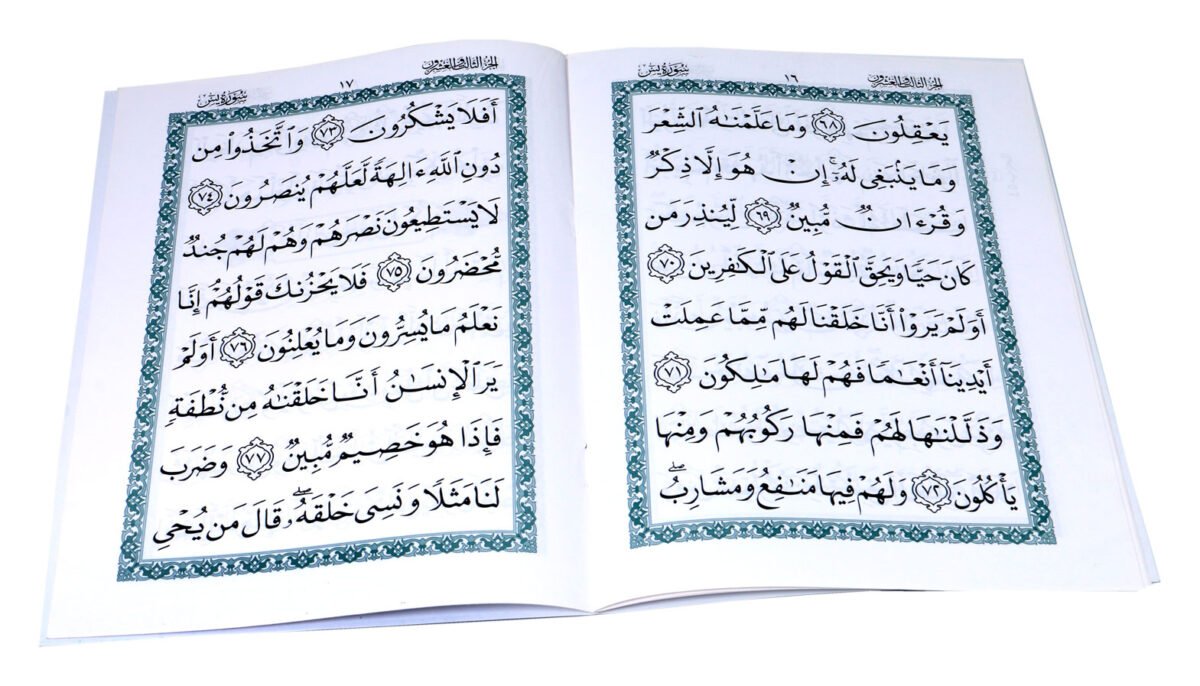 سورة يس ١٦ الجزء الثالث والعشرون
يَعْقِلُونَ ﴿٦٨﴾ وَمَا عَلَّمْنَاهُ الشِّعْرَ
وَمَا يَنْبَغِي لَهُ إِنْ هُوَ إِلَّا ذِكْرٌ
وَقُرْءَانٌ مُّبِينٌ ﴿٦٩﴾ لِّيُنذِرَ مَن
كَانَ حَيًّا وَيَحِقَّ الْقَوْلُ عَلَى الْكَافِرِينَ ﴿٧٠﴾
أَوَلَمْ يَرَوْا أَنَّا خَلَقْنَا لَهُم مِّمَّا عَمِلَتْ
أَيْدِينَا أَنْعَامًا فَهُمْ لَهَا مَالِكُونَ ﴿٧١﴾
وَذَلَّلْنَاهَا لَهُمْ فَمِنْهَا رَكُوبُهُمْ وَمِنْهَا
يَأْكُلُونَ ﴿٧٢﴾ وَلَهُمْ فِيهَا مَنَافِعُ وَمَشَارِبُ ۖ
سورة يس ١٧ الجزء الثالث والعشرون
أَفَلَا يَشْكُرُونَ ﴿٧٣﴾ وَاتَّخَذُوا مِن
دُونِ اللَّهِ ءَالِهَةً لَّعَلَّهُمْ يُنصَرُونَ ﴿٧٤﴾
لَا يَسْتَطِيعُونَ نَصْرَهُمْ وَهُمْ لَهُمْ جُندٌ
مُّحْضَرُونَ ﴿٧٥﴾ فَلَا يَحْزُنكَ قَوْلُهُمْ ۘ إِنَّا
نَعْلَمُ مَا يُسِرُّونَ وَمَا يُعْلِنُونَ ﴿٧٦﴾ أَوَلَمْ
يَرَ الْإِنسَانُ أَنَّا خَلَقْنَاهُ مِن نُّطْفَةٍ
فَإِذَا هُوَ خَصِيمٌ مُّبِينٌ ﴿٧٧﴾ وَضَرَبَ
لَنَا مَثَلًا وَنَسِيَ خَلْقَهُ ۖ قَالَ مَن يُحْيِ